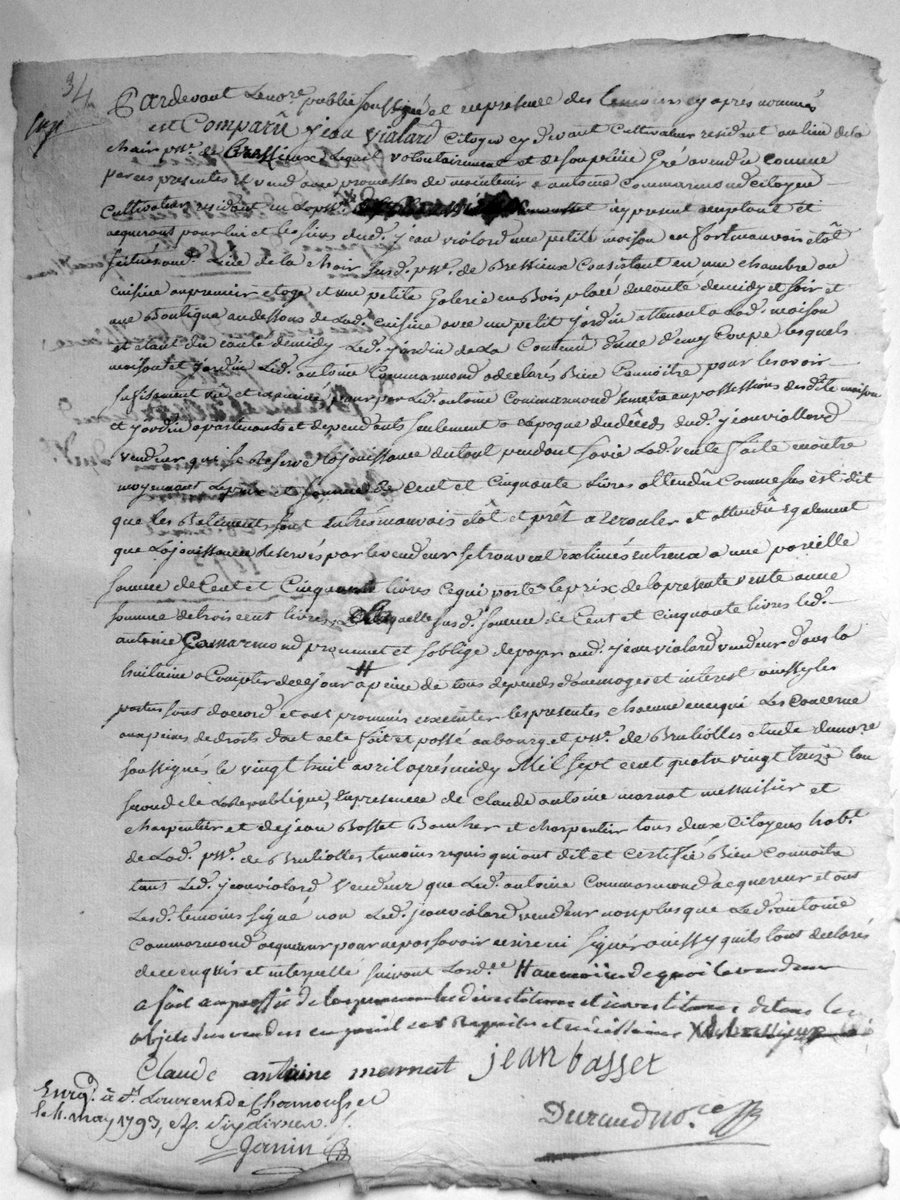 34
Pardevant Le no.re public soussigné et en presence des temoins cy apres nommés
est Comparû jean Vialard Citoyen cy devant Cultivateur residant au lieu de la
chair p.sse de Bressieux Lequel volontairement et de son plein Gré a vendu comme
par ces presentes il vend avec promesses de maintenir a antoine Commarmond citoyen
cultivateur residant en La p.sse icy present acceptant et
acquerant pour lui et les siens dud. jean violard une petite maison en fort mauvais etât
située aud. Lieu de la chair susd. p.sse de Bressieux Consistant en une chambre ou
cuisine au premier etage et une petite Galerie en Bois place du couté de midy et soir et
une Boutique au dessous de Lad. cuisine avec un petit jardin attenant a Lad. maison
et étant du couté de midy Led. jardin de La Contenû d'une d'emy Coupe lesquels
maison et jardin Led. antoine Commarmond a declarés Bien Connoitre pour les avoir
suffisament vû et examiné, pour par Led. antoine Commarmond se mettre en possessions desd. maison
et jardin apartenants et dependants seulement a l'epoque du décès dud. jean viallard
vendeur qui se Reserve la jouissance du tout pendant sa vie Lad. vente faite en outre
moyennant Le prix et somme de Cent et Cinquante Livres attendû Comme sus est dit
que les Batiments sont en tres mauvais etât et prêt a s'ecrouler et attendû egalement
que La jouissance Reservés par le vendeur se trouve estimés entr'eux a une pareille
somme de Cent et Cinquante livres ce qui porte le prix de la presente vente a une
somme de trois cent livres, Laquelle susd. somme de Cent et cinquante livres led.
antoine Comarmond promet et s'oblige de payer aud. jean vialard vendeur dans la
huitaine a Compter de ce jour # a peine de tous depends domages et interest ainsy les
parties sont d'accord et ont promis executer les presentes chacune en ce qui Les concerne
aux peines de droits dont acte fait et passé au bourg et p.sse de Brulliolles etude du no.re
soussignés le vingt huit avril apres midy Mil sept cent quatre vingt treize l'an
second de La Republique, En presence de Claude antoine marnat menuisier et
charpentier et de jean Basset Boucher et charpentier tous deux Citoyens hab.t
de Lad. p.sse de Brulliolles temoins requis qui ont dit et certifié Bien connoitre
tant Led. jean vialard Vendeur que Led. antoine Commarmond acquereur et ont
Lesd. temoins signé non Led. jean vialard vendeur non plus que Led. antoine
Commarmond acquereur pour ne pas savoir ecrire ni signer ainsy quils l'ont declarés
de ce enquis et interpellé suivant L'ord.ce # au moien de quoi le vendeur
a fait au proffit de l'acquereur les devestitures et investitures de tous les
objets sus vendus en pareil cas Requises et nécéssaires
Claude antoine marnat jean basset
Enrg. à St. Laurent de Chamousset
le 11 may 1793,
Janin
Durand no.re